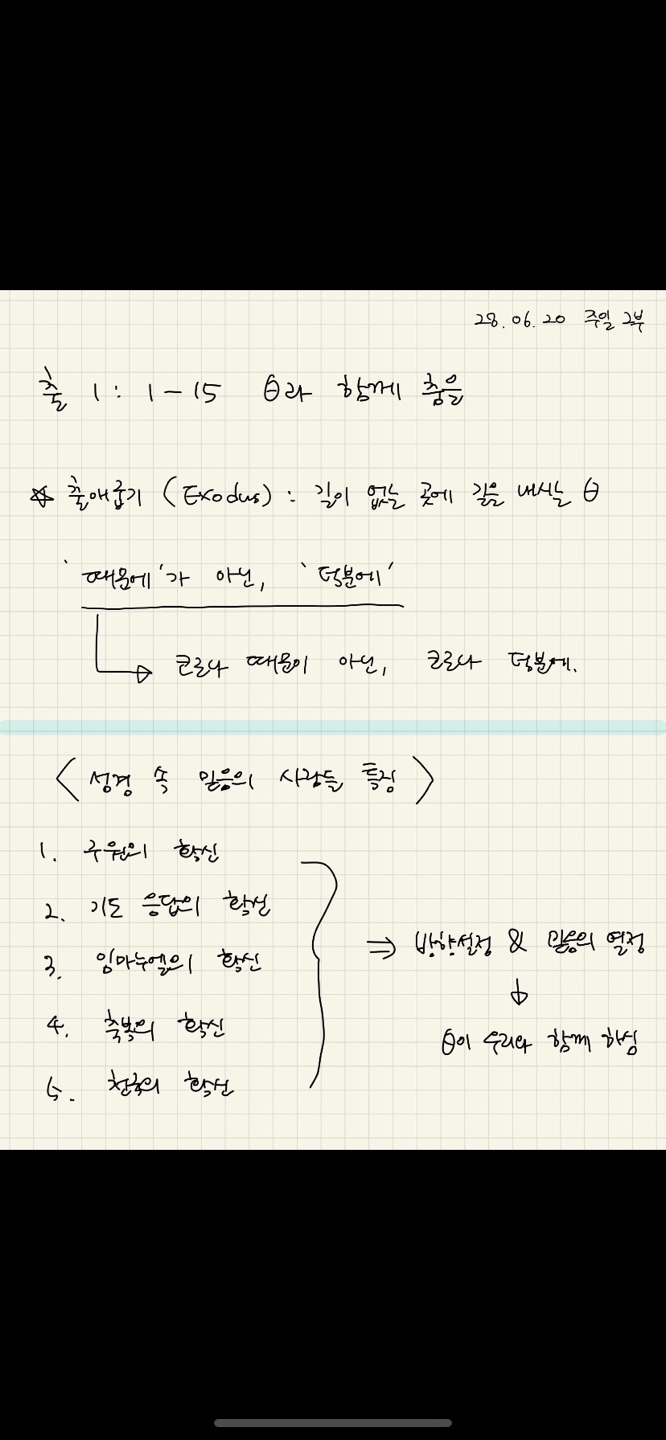 28.06.20 주일 2부
출 1 : 1 - 15 θ과 함께 춤을
* 출애굽기 (Exodus) : 길이 없는 곳에 길을 내시는 θ
'때문에'가 아닌, '덕분에'
코로나 때문이 아닌, 코로나 덕분에.
<성경 속 믿음의 사람들 특징>
1. 구원의 확신
2. 기도 응답의 확신
3. 임마누엘의 확신
4. 축복의 확신
5. 천국의 확신
⇒ 방향설정 & 믿음의 열정
↓
θ이 우리와 함께 하심